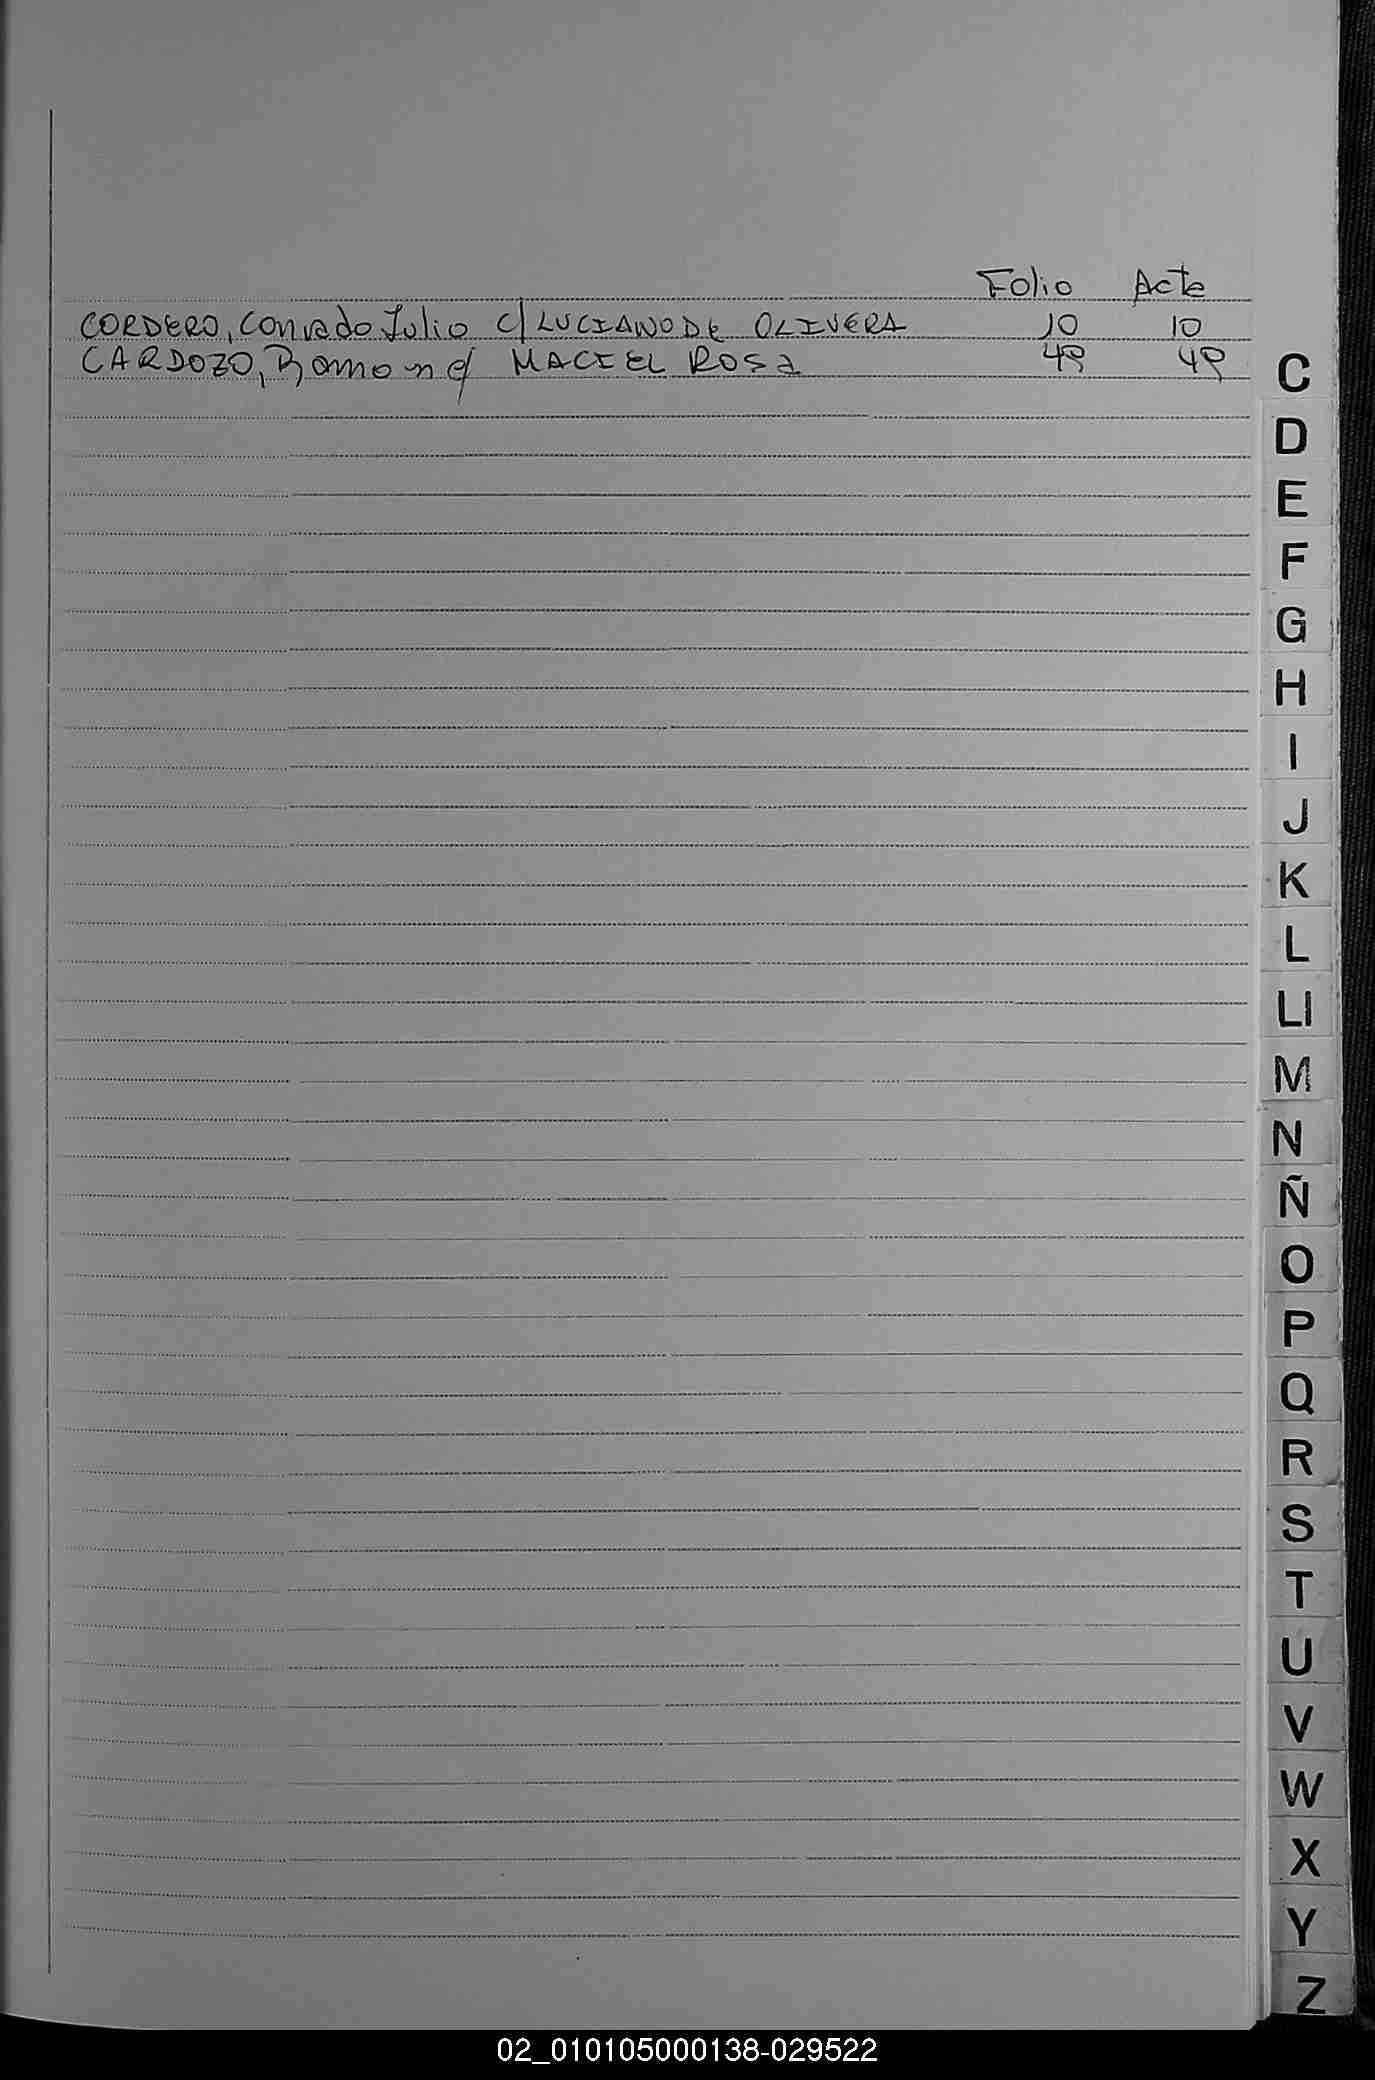 Folio Acta
CORDERO, Conrado Julio c/ LUCIANO DE OLIVERA 10 10
CARDOZO, Ramon c/ MACIEL ROSA 49 49
C
D
E
F
G
H
I
J
K
L
Ll
M
N
Ñ
O
P
Q
R
S
T
U
V
W
X
Y
Z
02_010105000138-029522